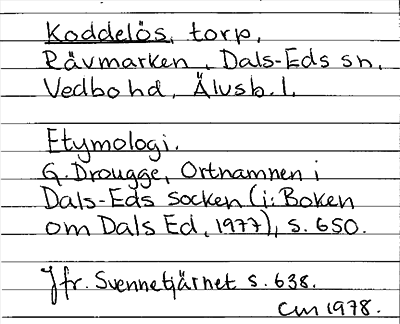 Koddelös, torp,
Rävmarken, Dals-Eds sn,
Vedbo hd, Älvsb. l.
Etymologi.
G. Drougge, Ortnamnen i
Dals-Eds socken (i: Boken
om Dals Ed, 1977), s. 650.
Jfr. Svennetjärnet s. 638.
CM 1978.